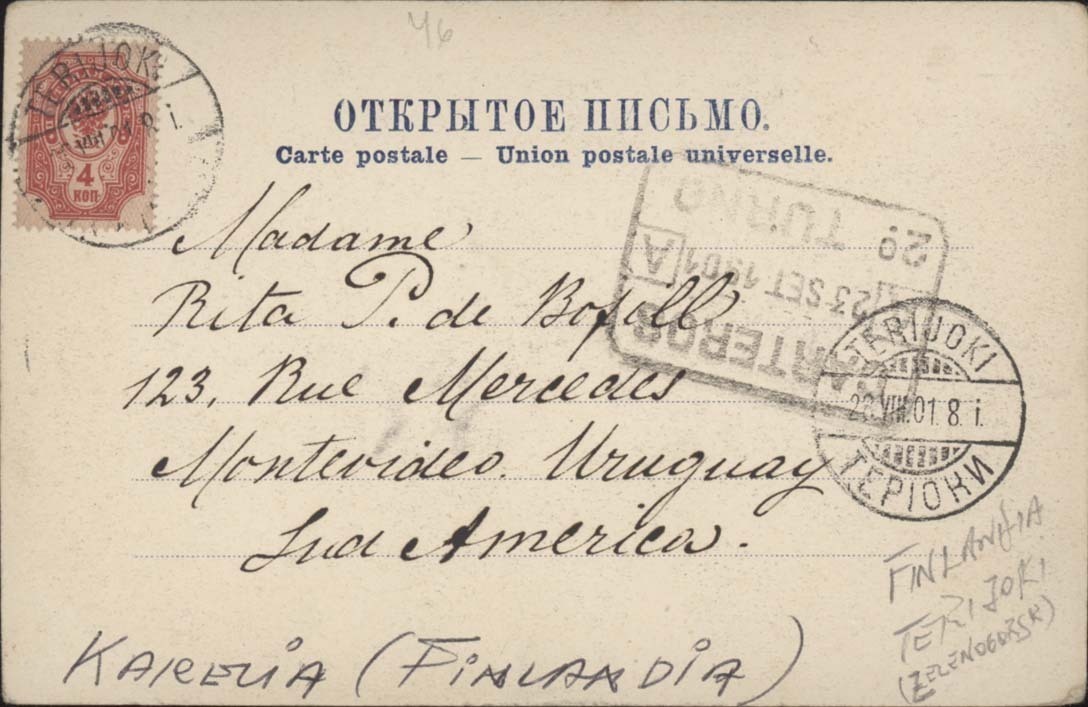 46
TERIJOKI
8 i.
4
КОП
ОТКРЫТОЕ ПИСЬМО.
Carte postale — Union postale universelle.
Madame
Rita P. de Bofill
123, Rue Mercedes
Montevideo. Uruguay
Sud America.
CARTEROS
A 23 SET 1901 A
2º TURNO
TERIJOKI
VIII.01. 8. i.
ТЕРІОКИ
FINLANDIA
TERIJOKI
(ZELENOGORSK)
KARELIA (FINLANDIA)